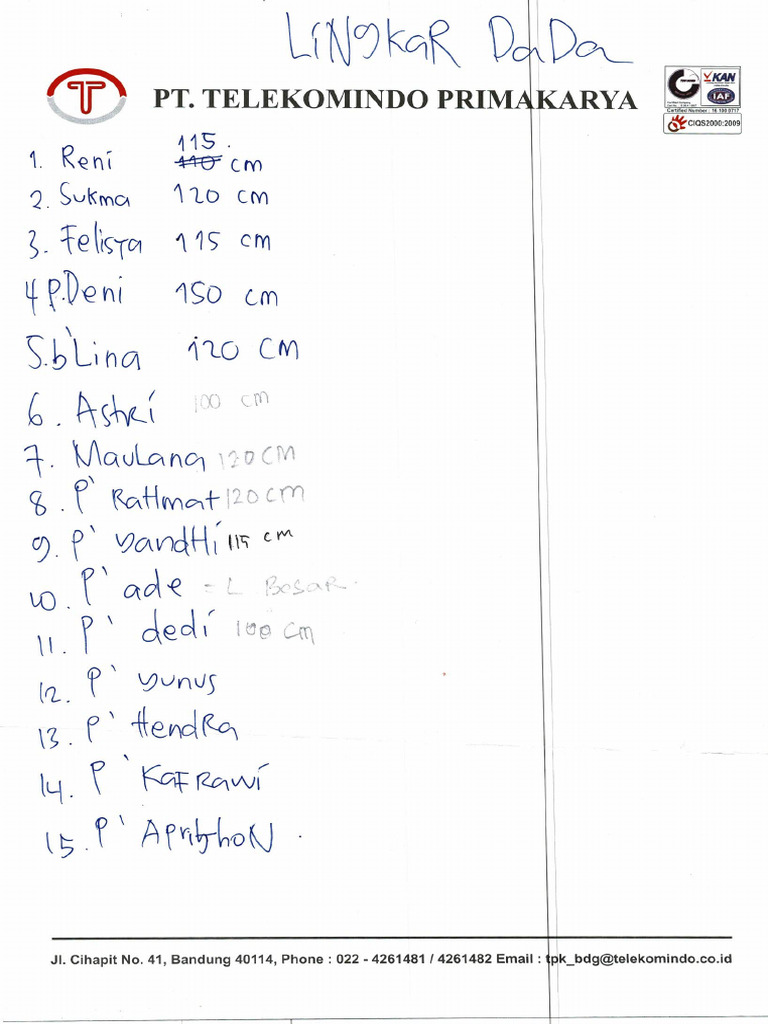 LiNgkaR DaDa
PT. TELEKOMINDO PRIMAKARYA
KAN
IAF
Certified Number : 16 100 0717
CIQS2000:2009
115.
1. Reni 110 cm
2. Sukma 120 cm
3. Felisya 115 cm
4 P.Deni 150 cm
5. b'Lina 120 CM
6. Astri 100 cm
7. Maulana 120 CM
8. P' RaHmat 120 cm
9. P' yandHi 115 cm
10. P' ade = L Besar.
11. P' dedi 100 cm
12. P' yunus
13. P' HendRa
14. P' KaFRawi
15. P'
Jl. Cihapit No. 41, Bandung 40114, Phone : 022 - 4261481 / 4261482 Email : tpk_bdg@telekomindo.co.id